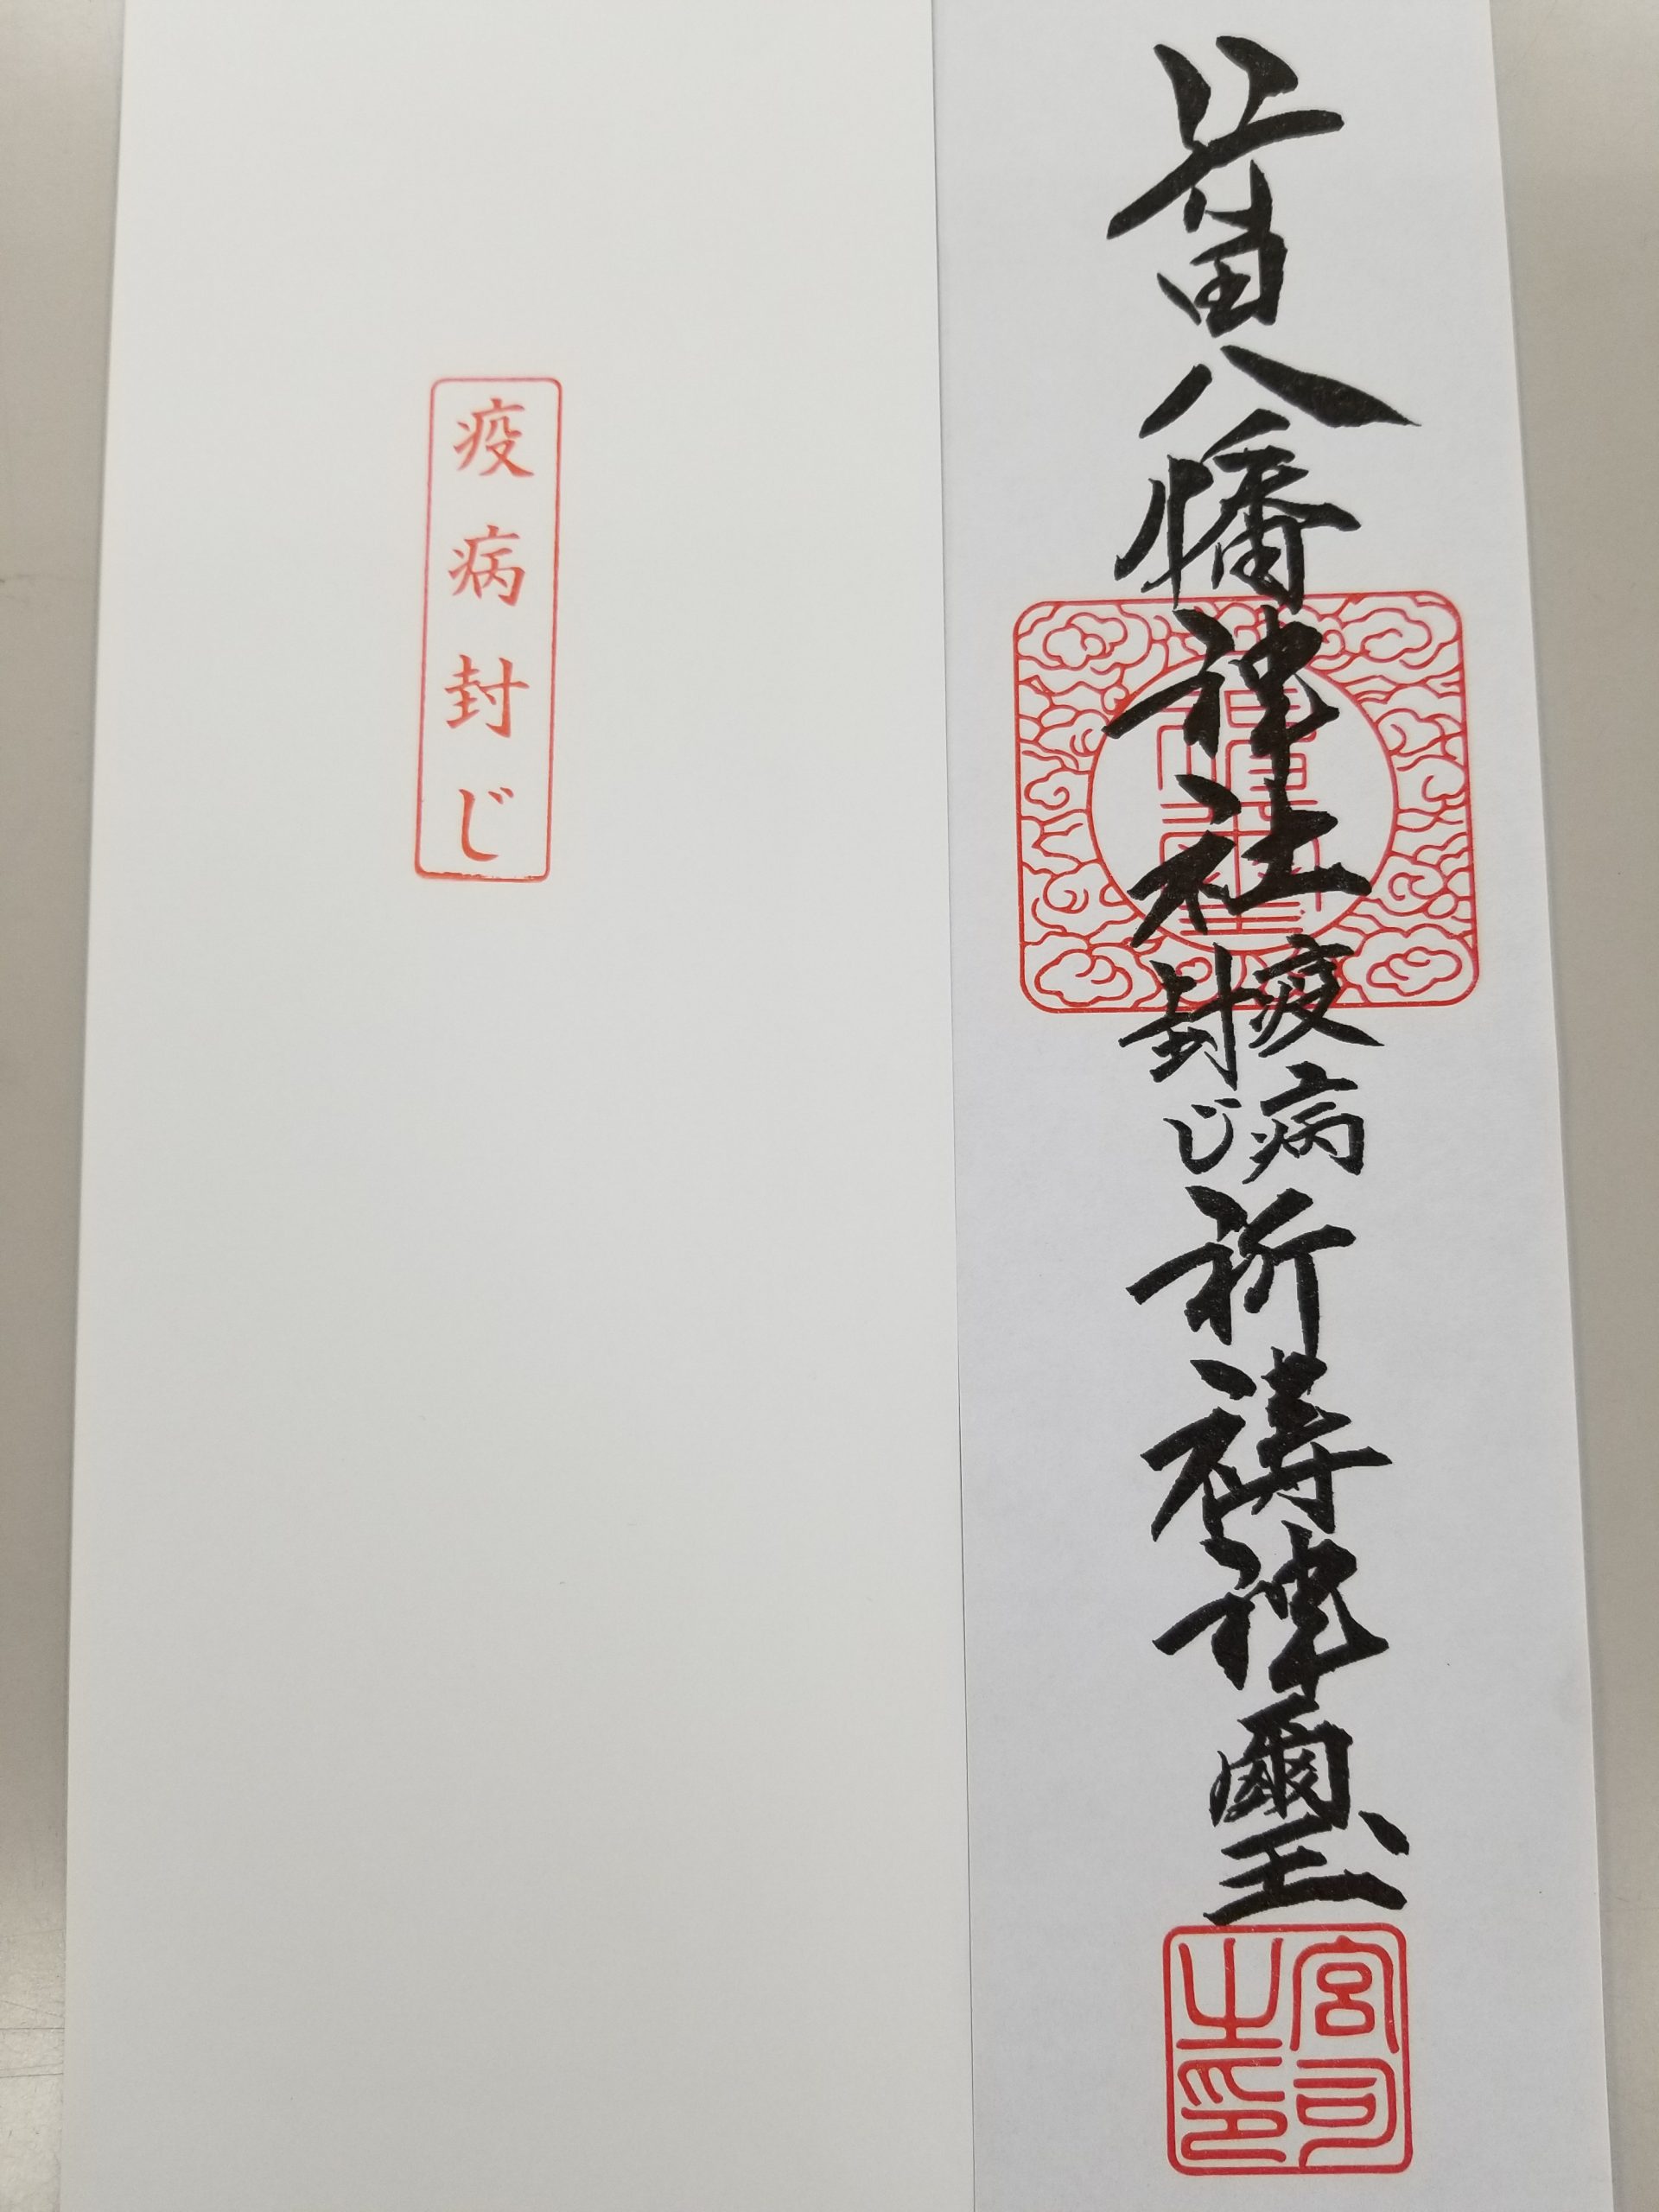 八幡神社
疫病
封じ
祈祷神璽
宮司
之印
疫病封じ